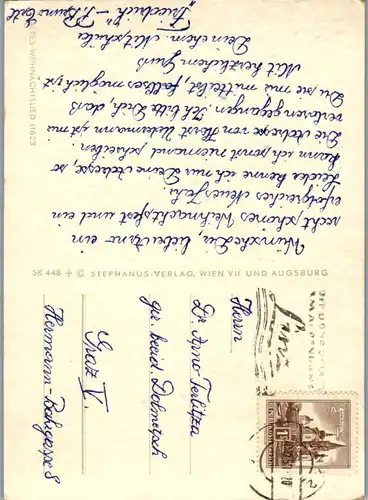 Wünsche Dir, lieber Arno ein
recht schönes Weihnachtsfest und ein
erfolgreiches Neues Jahr.
Leider kenne ich nur Deine Adresse, so
kann ich sonst niemand schreiben.
Die Adresse von Horst ist mir
verloren gegangen. Ich bitte Dich, daß
Du sie mir mitteilst, falls es möglich ist
Mit herzlichem Gruß
Dein ehem. Mitschüler
"Friedrich" – P. Bruno
ALTES WEIHNACHTSLIED (1623
SK 448 + © STEPHANUS-VERLAG, WIEN VII UND AUGSBURG
Linz
Herrn
Dr. Arno Terlitza
ger. beeid. Dolmetsch
Graz V.
Hermann-Bahrgasse 8